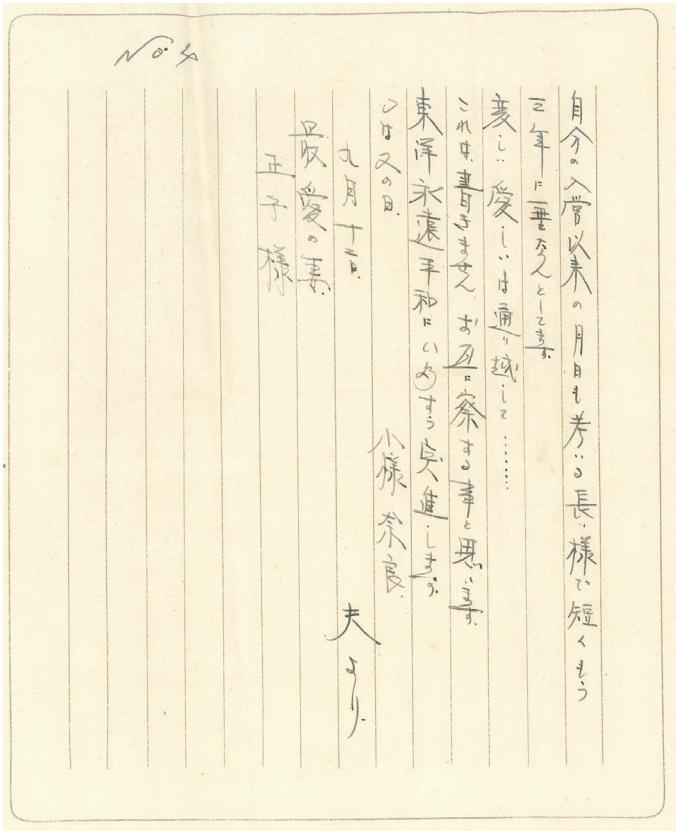 No 4
自分の入営以来の月日も考いる長い様で短くもう
三年に垂なんとしてます。
変しい愛しいは通り越して………
これは書きません お互に察する事と思います。
東洋永遠平和に すら突進します。
では又の日. 小様 奈良.
九月十二日. 夫より.
最愛の妻.
正子様